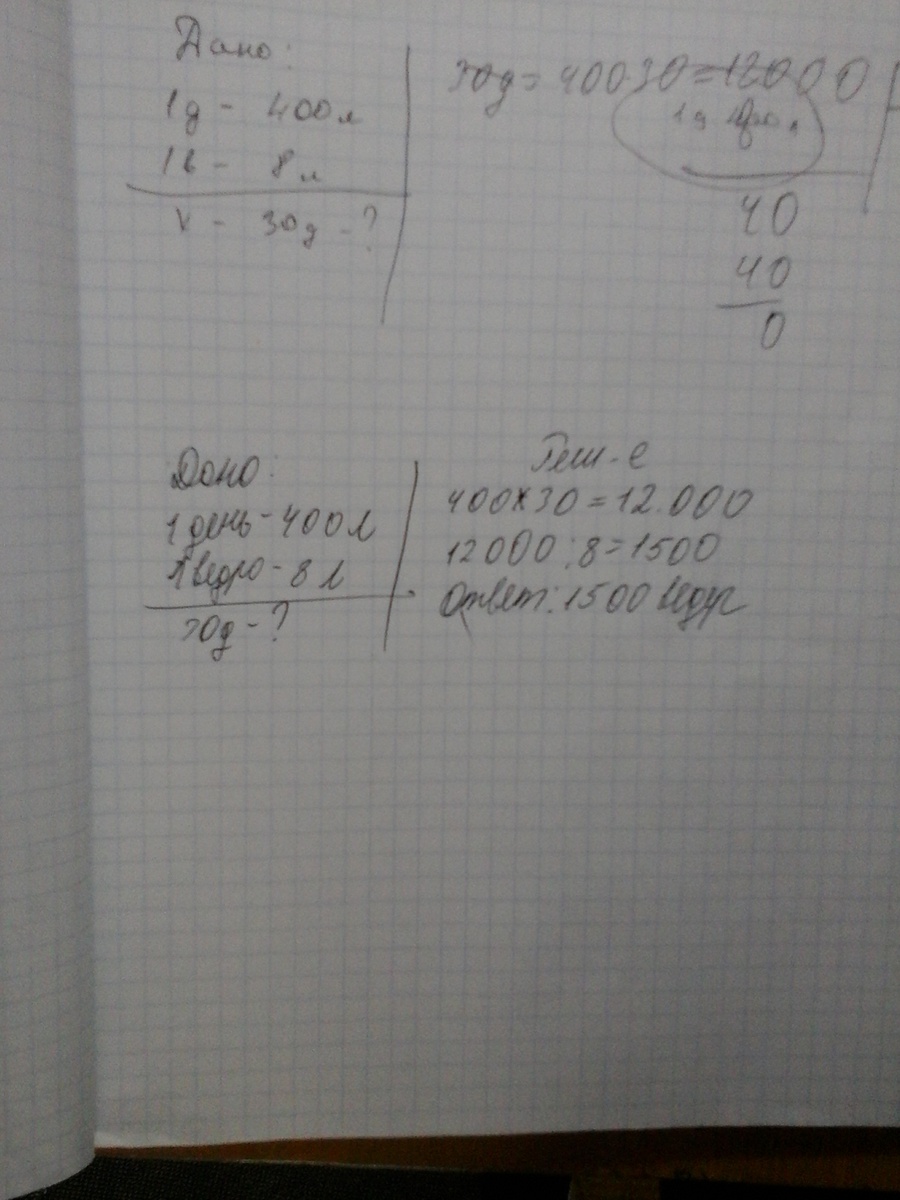 Дано:
1д - 400л
1в - 8л
V - 30д - ?
30д = 400·30 = 12000
1д
40
40
0
Дано:
1 день - 400 л
1 ведро - 8 л
30д - ?
Реш-е
400х30 = 12.000
12000 : 8 = 1500
Ответ: 1500 ведр